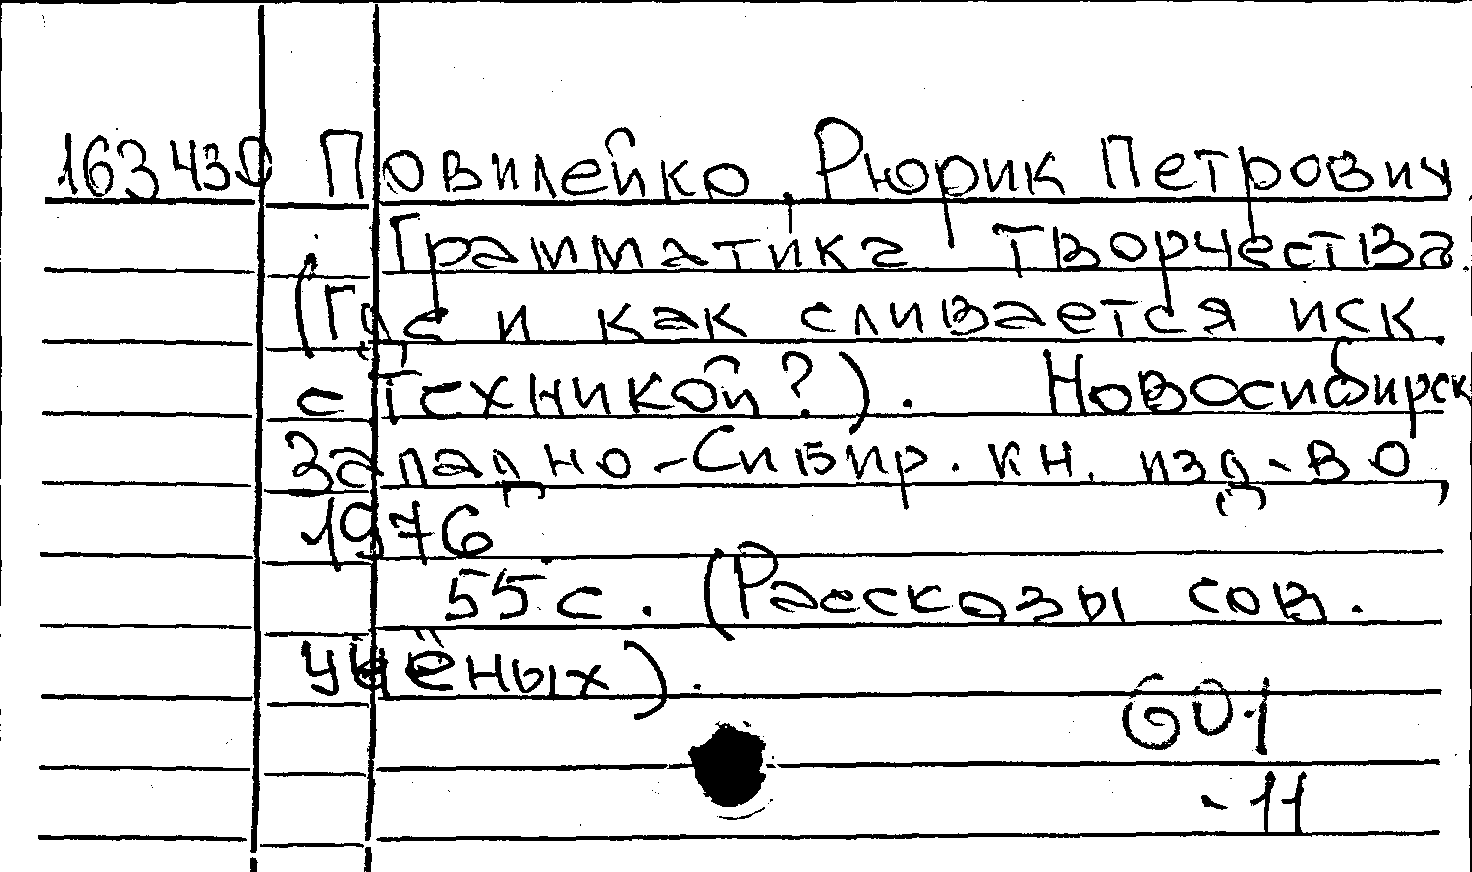 163430 Повилейко, Рюрик Петрович
Грамматика творчества
(Где и как сливается иск
с техникой?). Новосибирск
Западно-Сибир. кн. изд-во,
1976
55 с. (Рассказы сов.
учёных).
601
-11